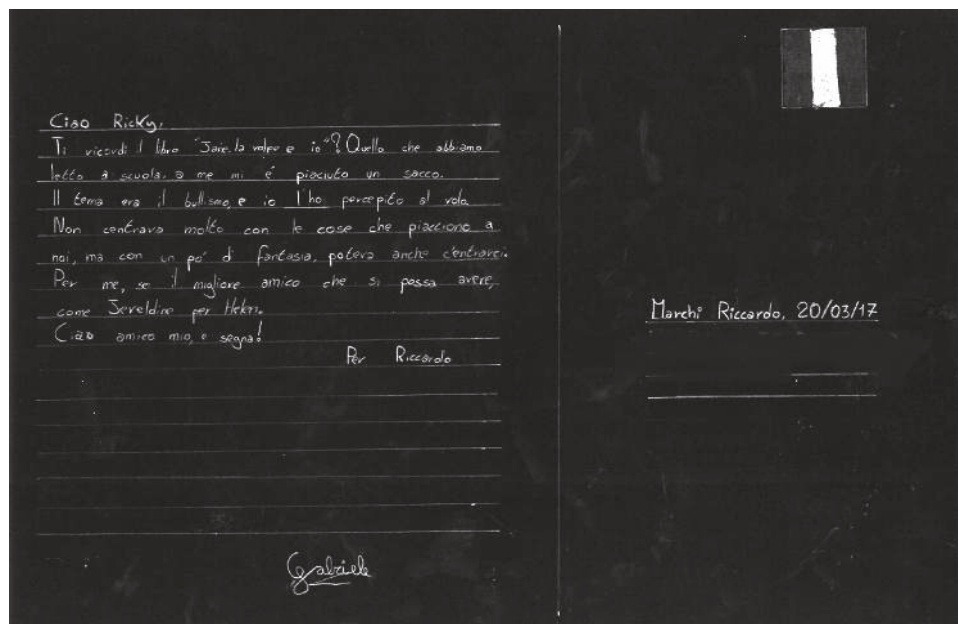 Ciao Ricky,
Ti ricordi il libro "Jane, la volpe e io"? Quello che abbiamo
letto a scuola, a me mi é piaciuto un sacco.
Il tema era il bullismo, e io l'ho percepito al volo.
Non centrava molto con le cose che piacciono a
noi, ma con un po' di fantasia, poteva anche c'entrarci.
Per me, sei il migliore amico che si possa avere,
come Jeraldine per Helen.
Ciao amico mio, e segna!
Per Riccardo
Gabriele
Marchi Riccardo, 20/03/17